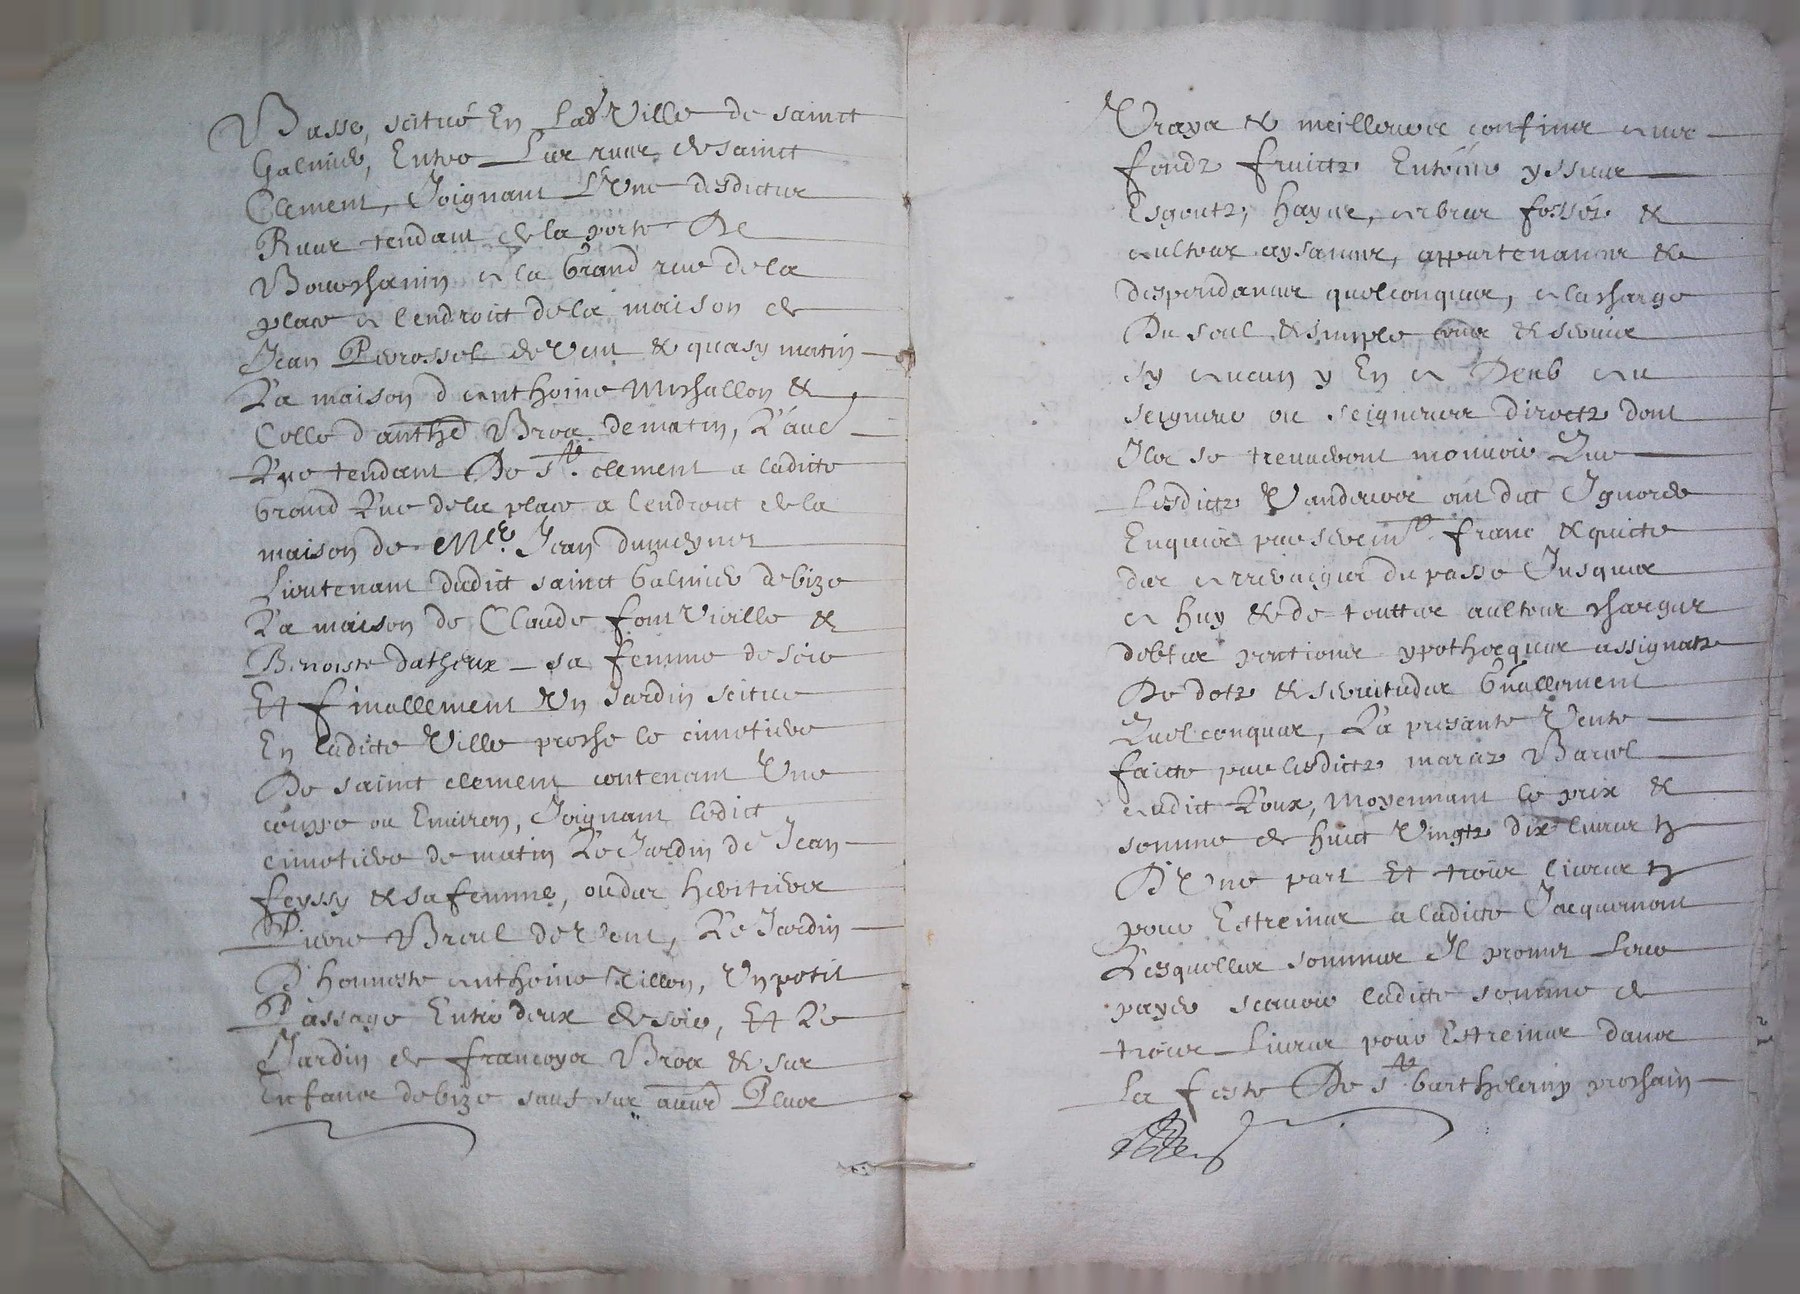 Basse, scitué En Lad Ville de sainct
Galmier, Entre Les rues de sainct
Clement, Joignant L'Une desdictes
Rues tendant de la porte De
Bouchanin a la Grand rue de la
place a lendroict de la maison de
Jean Peyrossel de Vent & quasy matin
La maison d anthoine Michallon &
Celle d'anthe Broa de matin, L'aue
Rue tendant De St. clement a ladicte
Grand Rue de la place a lendroict de la
maison de Me. Jean dumeynet
Lieutenant dudict sainct Galmier de bize
La maison de Claude font Vieille &
Benoiste datheux sa femme de soir
Et finallement Un Jardin scitué
En ladicte Ville proche le cimetiere
De sainct clement contenant Une
couppe ou Environ, Joignant ledict
cimetiere de matin Le Jardin de Jean
feyssy & sa femme, ou des heritiers
Pierre Breul de Vent, Le Jardin
D'honneste anthoine Tillon, Un petit
Passage Entre deux de soir, Et Le
Jardin de francoys Broa & ses
Enfans de bize sauf ses aues Plus
Vrays & meilleurs confins auec
fonds fruictz Entrées yssues
Esgoutz, hayes, arbres fossés &
aultres aysances, appartenances &
despendances quelconques, a la charge
Du seul & simple cens & seruice
sy aucun y En a Deub au
seigneur ou seigneurs directz dont
Ilz se treuueront mouuoir Que
Lesdictz Vandeurs ont dict Ignorer
Enquis par seremt. franc & quicte
des arreraiges du passé Jusques
a huy & de touttes aultres charges
debtes pentions ypothecques assignatz
De dotz & seruitudes Gnallement
Quelconques, La presante Vente
faicte par lesdictz mariez Barrel
audict Roux, Moyennant le prix &
somme de huict Vingtz dix liures tz
D'Une part Et troys liures tz
pour Estreines a ladicte Jacquemont
Lesquelles sommes Il promet Leur
payer scauoir ladicte somme de
troys Liures pour Estreines dans
La feste De St. barthelemy prochain